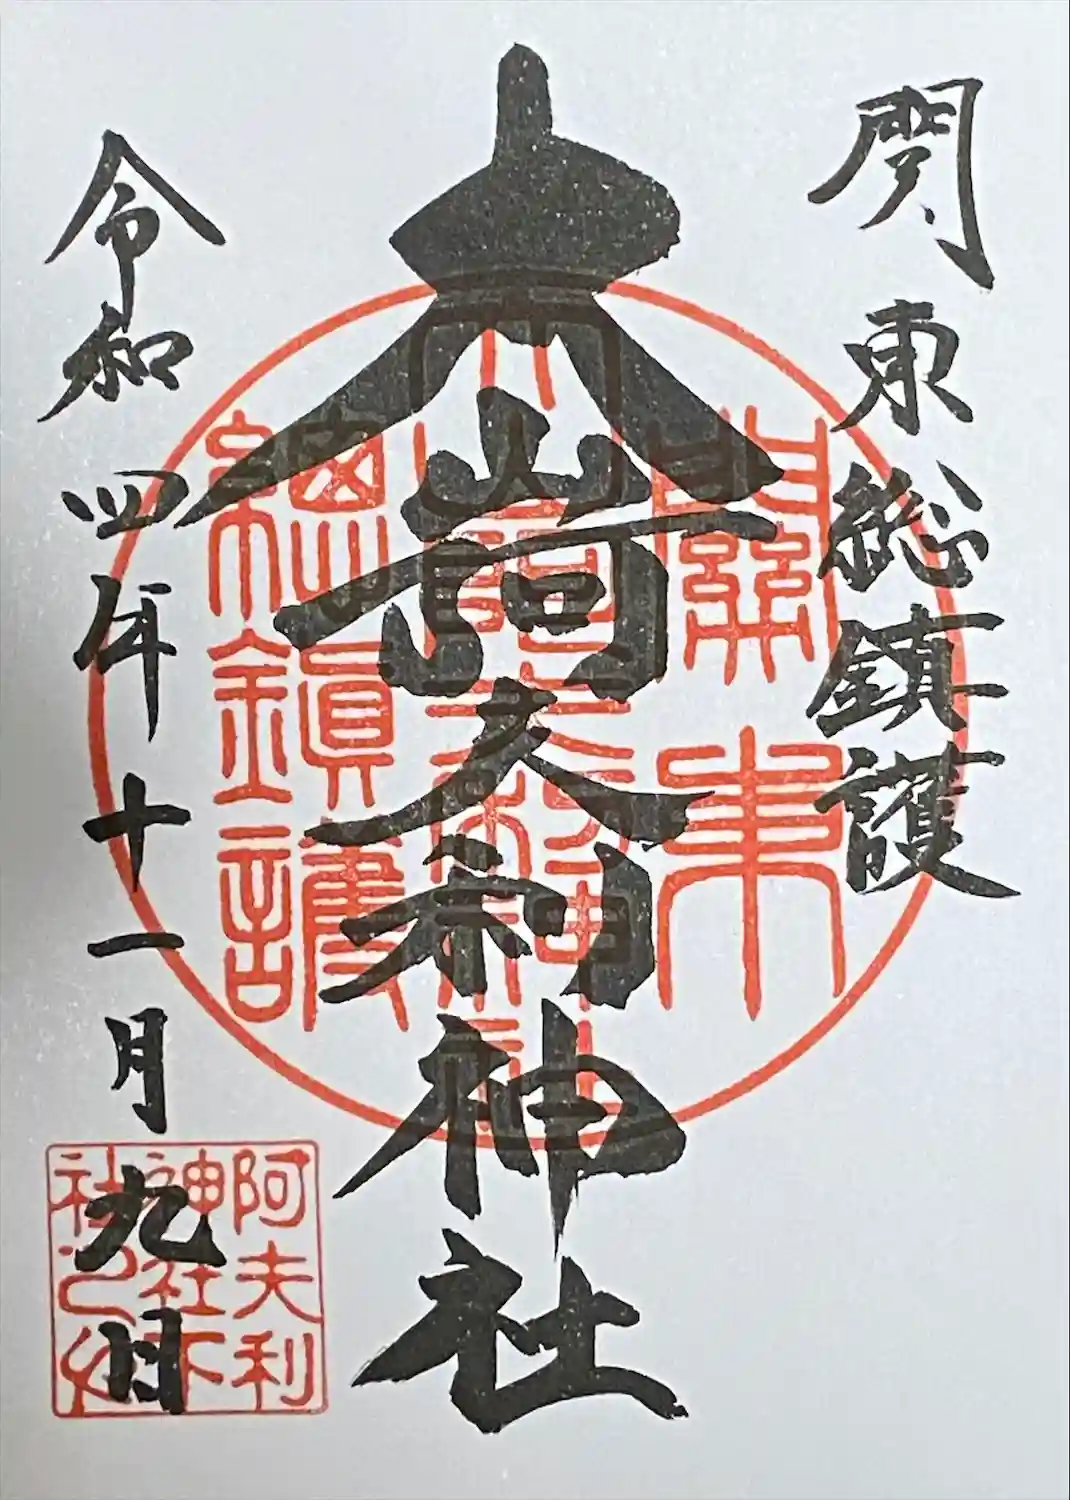 関東総鎮護
大山阿夫利神社
令和四年十一月九日
關東
大山阿夫利神社
總鎭護
阿夫利
神社下
社之印